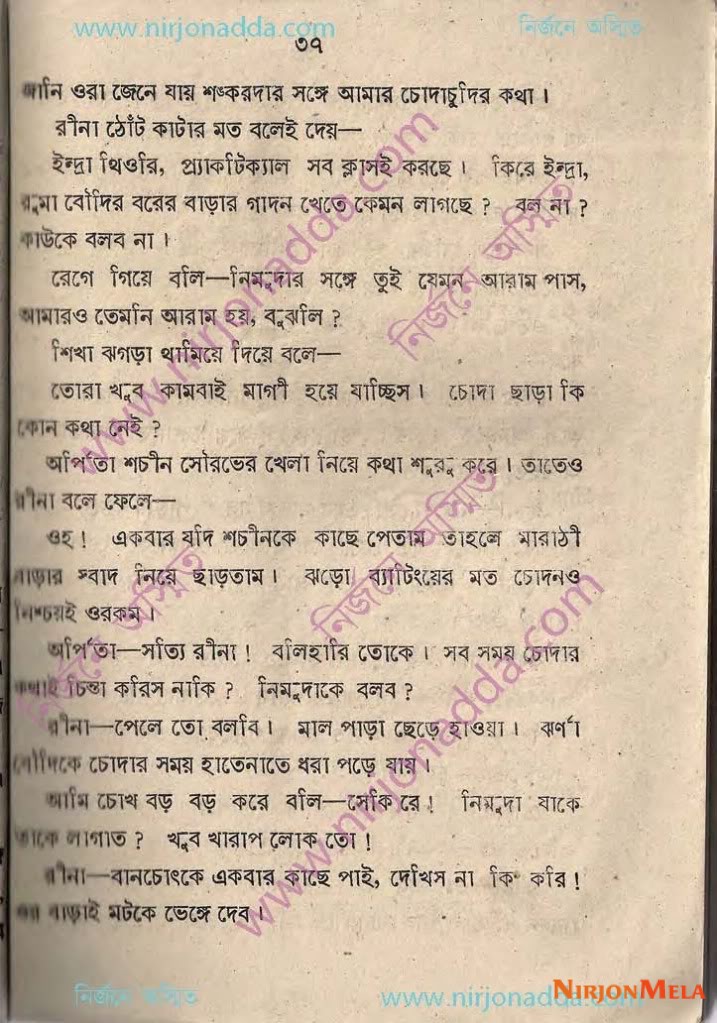 www.nirjonadda.com নির্জনে অস্মিত
৩৭
জানি ওরা জেনে যায় শঙ্করদার সঙ্গে আমার চোদাচুদির কথা।
রীনা ঠোঁট কাটার মত বলেই দেয়—
ইন্দ্রা থিওরি, প্র্যাকটিক্যাল সব ক্লাসই করছে। কিরে ইন্দ্রা,
রুমা বৌদির বরের বাড়ার গাদন খেতে কেমন লাগছে? বল না?
কাউকে বলব না।
রেগে গিয়ে বলি—নিমুদার সঙ্গে তুই যেমন আরাম পাস,
আমারও তেমনি আরাম হয়, বুঝলি?
শিখা ঝগড়া থামিয়ে দিয়ে বলে—
তোরা খুব কামবাই মাগী হয়ে যাচ্ছিস। চোদা ছাড়া কি
কোন কথা নেই?
অর্পিতা শচীন সৌরভের খেলা নিয়ে কথা শুরু করে। তাতেও
রীনা বলে ফেলে—
ওহ! একবার যদি শচীনকে কাছে পেতাম তাহলে মারাঠী
বাড়ার স্বাদ নিয়ে ছাড়তাম। ঝড়ো ব্যাটিংয়ের মত চোদনও
নিশ্চয়ই ওরকম।
অর্পিতা—সত্যি রীনা! বলিহারি তোকে। সব সময় চোদার
কথাই চিন্তা করিস নাকি? নিমুদাকে বলব?
রীনা—পেলে তো বলবি। মাল পাড়া ছেড়ে হাওয়া। ঝর্ণা
বৌদিকে চোদার সময় হাতেনাতে ধরা পড়ে যায়।
আমি চোখ বড় বড় করে বলি—সেকি রে! নিমুদা যাকে
তাকে লাগাত? খুব খারাপ লোক তো!
রীনা—বানচোৎকে একবার কাছে পাই, দেখিস না কি করি!
ওর বাড়াই মটকে ভেঙ্গে দেব।
নির্জনে অস্মিত www.nirjonadda.com
NIRJONMELA
www.nirjonadda.com
নির্জনে অস্মিত
নির্জনে অস্মিত
নির্জনে অস্মিত
www.nirjonadda.com